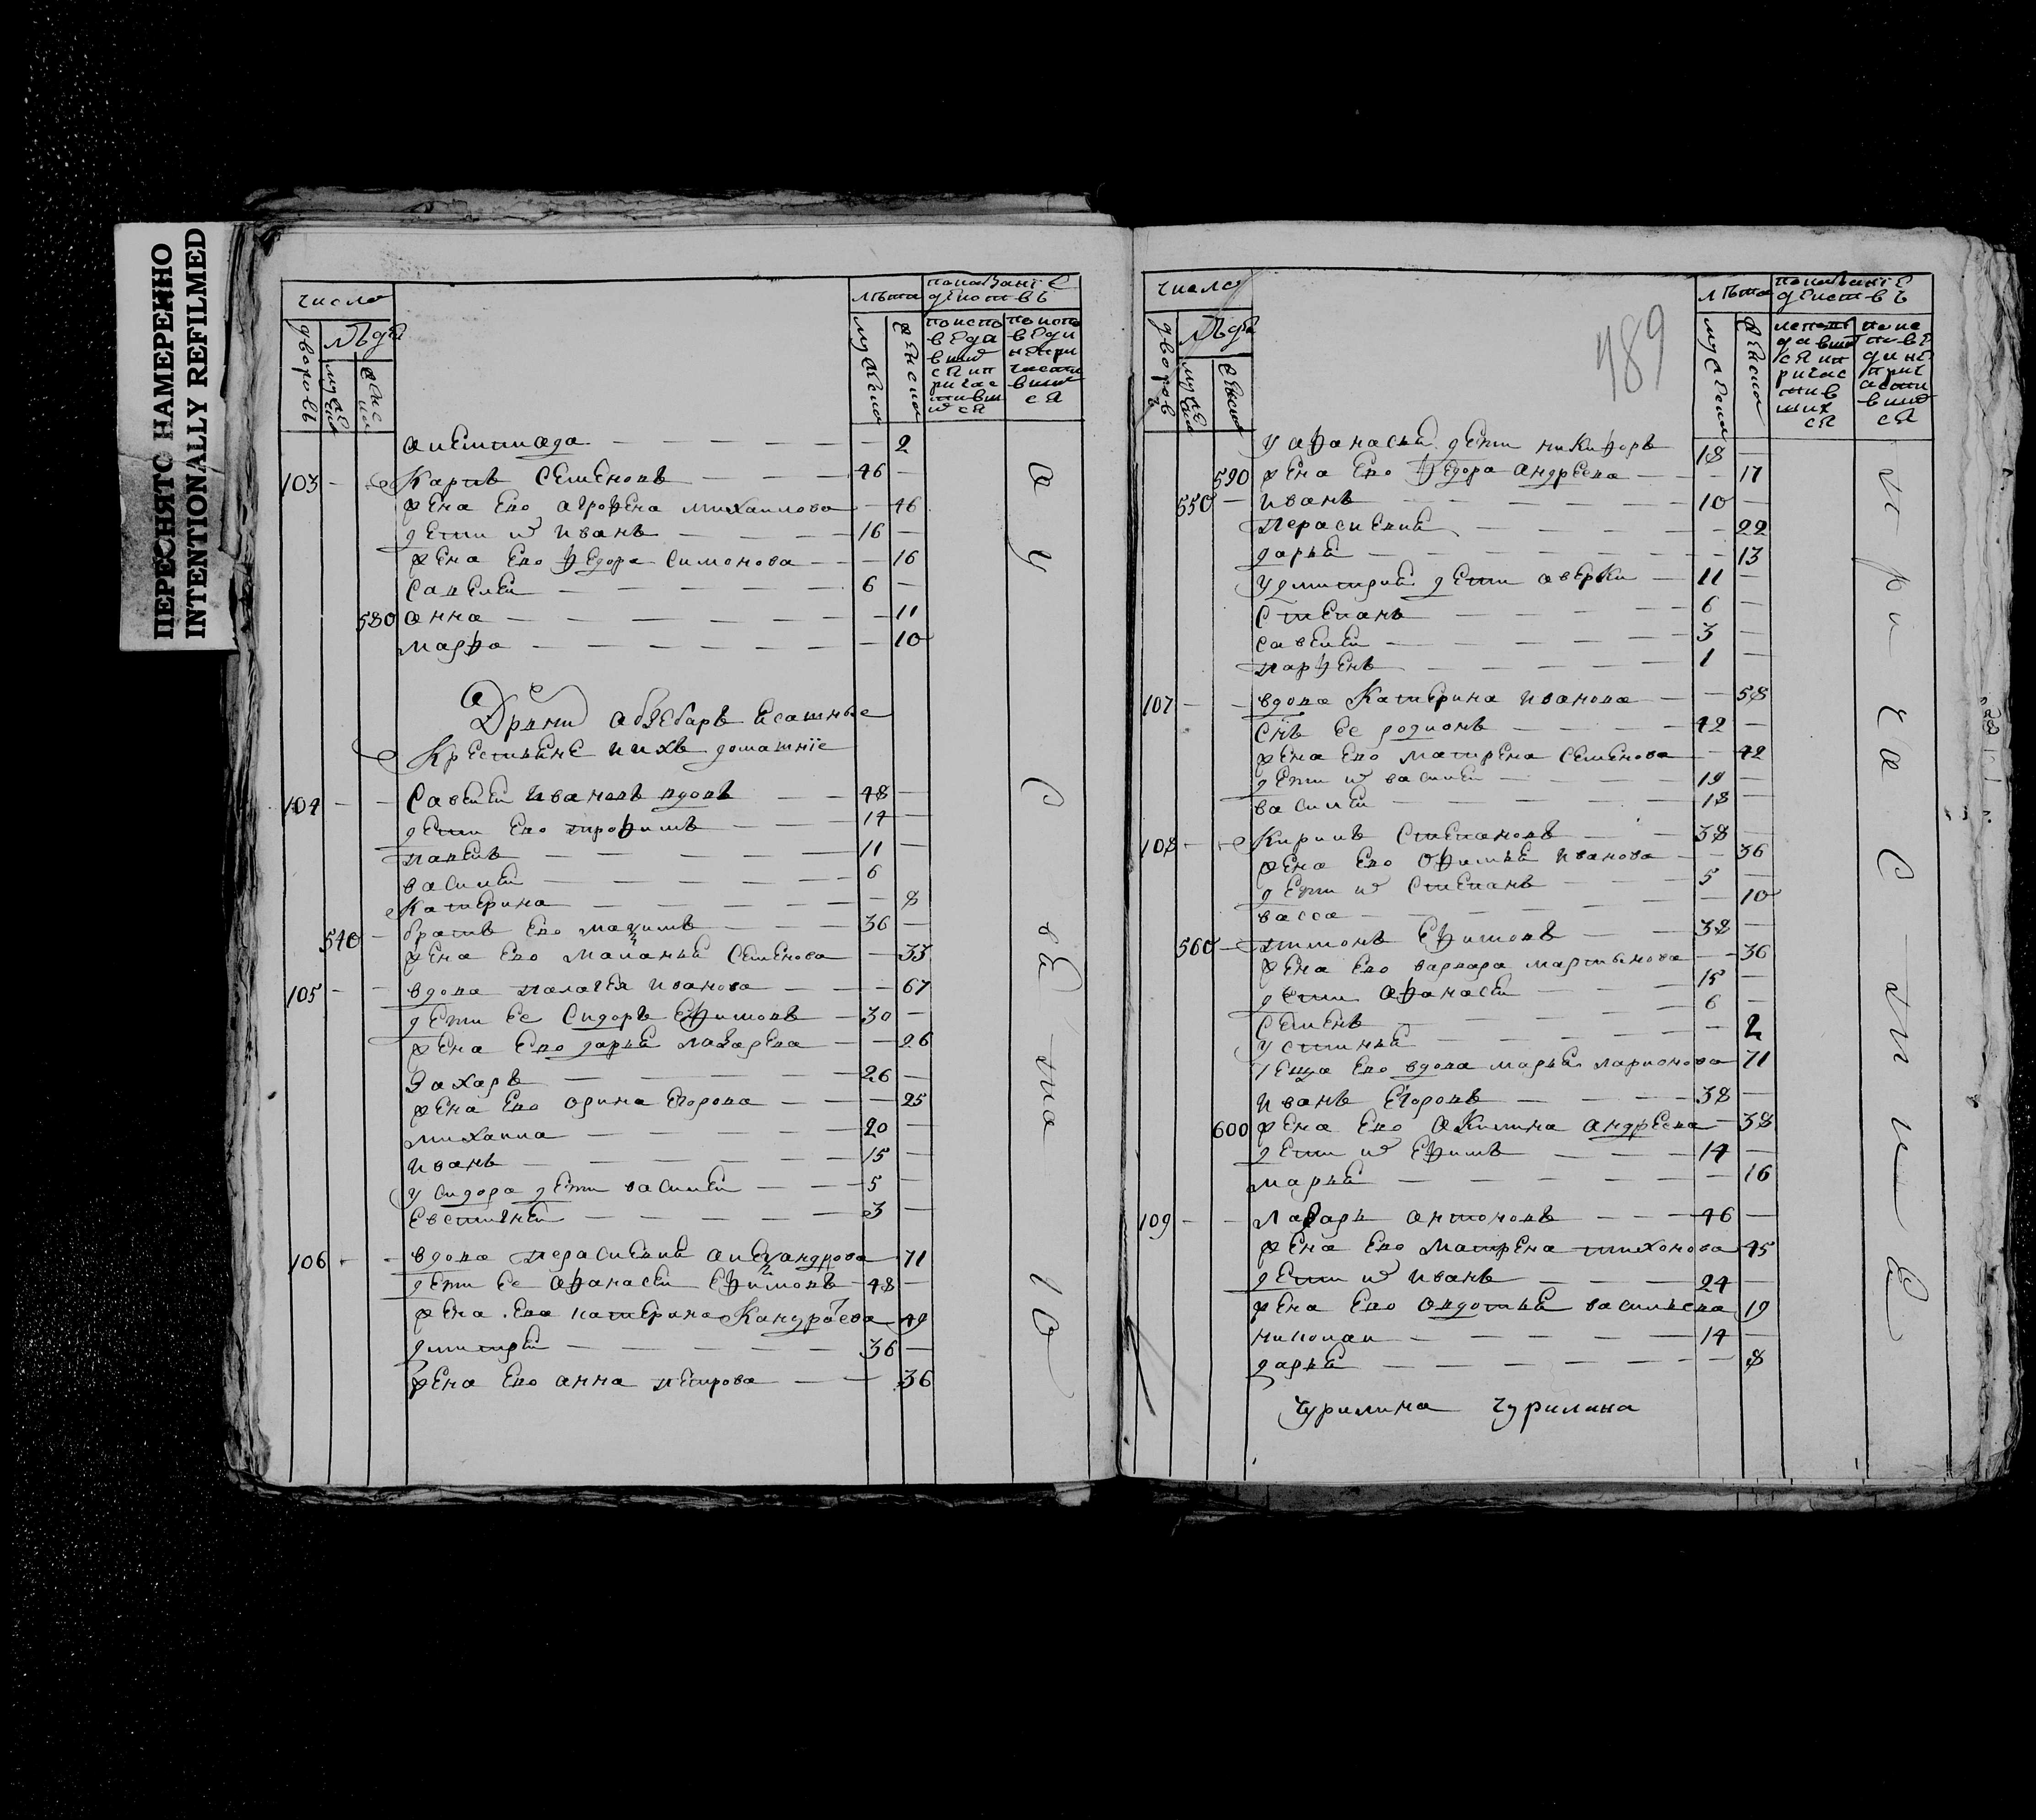 ПЕРЕСНЯТО НАМЕРЕННО
INTENTIONALLY REFILMED
число
лѣта
показаніе
действъ
дворовъ
людей
мужеска
женска
мужеска
женска
2
103 Карпъ Семеновъ 46
жена ево агрофена михаилова 46
дети их Иванъ 16
жена ево федора Симонова 16
Савелей 6
580 анна 11
марфа 10
Крестьяне и ихъ домашніе
104 Савелей Ивановъ вдовъ 48
дети ево трофимъ 14
павелъ 11
василей 6
Катерина 8
540 братъ ево мазимъ 36
жена ево Маланья Семенова 33
105 вдова палагея Иванова 67
дети ее Сидоръ Ефимовъ 30
жена ево дарья лазарева 26
Захаръ 26
жена ево орина Егорова 25
михаила 20
Иванъ 15
у сидора дети василей 5
Евстигней 3
106 вдова парасковия александрова 71
дети ее афанасей Ефимовъ 48
жена ево катерина Кандратева 49
дмитрей 36
жена ево анна петрова 36
489
число
лѣта
показаніе
действъ
дворов
людей
мужеска
женска
мужеска
женска
у афанасья дети никифоръ 18
590 жена ево федора андреева 17
550 Иванъ 10
парасковия 22
дарья 13
у дмитрия дети аверки 11
Степанъ 6
савелей 3
парфенъ 1
107 вдова Катерина Иванова 58
снъ ее родионъ 42
жена ево матрена Семенова 42
дети их василей 19
василей 18
108 Кирилъ Степановъ 38
жена ево офимья Иванова 36
дети их Степанъ 5
васса 10
560 тимонъ Ефимовъ 38
жена ево варвара мартынова 36
дети афанасей 15
Семенъ 6
устинья 2
теща ево вдова марья ларионова 71
Иванъ Егоровъ 38
600 жена ево акилина андреева 38
дети их Ефимъ 14
марья 16
109 Лазарь антоновъ 46
жена ево матрена тихонова 45
дети их Иванъ 24
жена ево авдотья васильева 19
николаи 14
дарья 8
Чурилина Чурилина